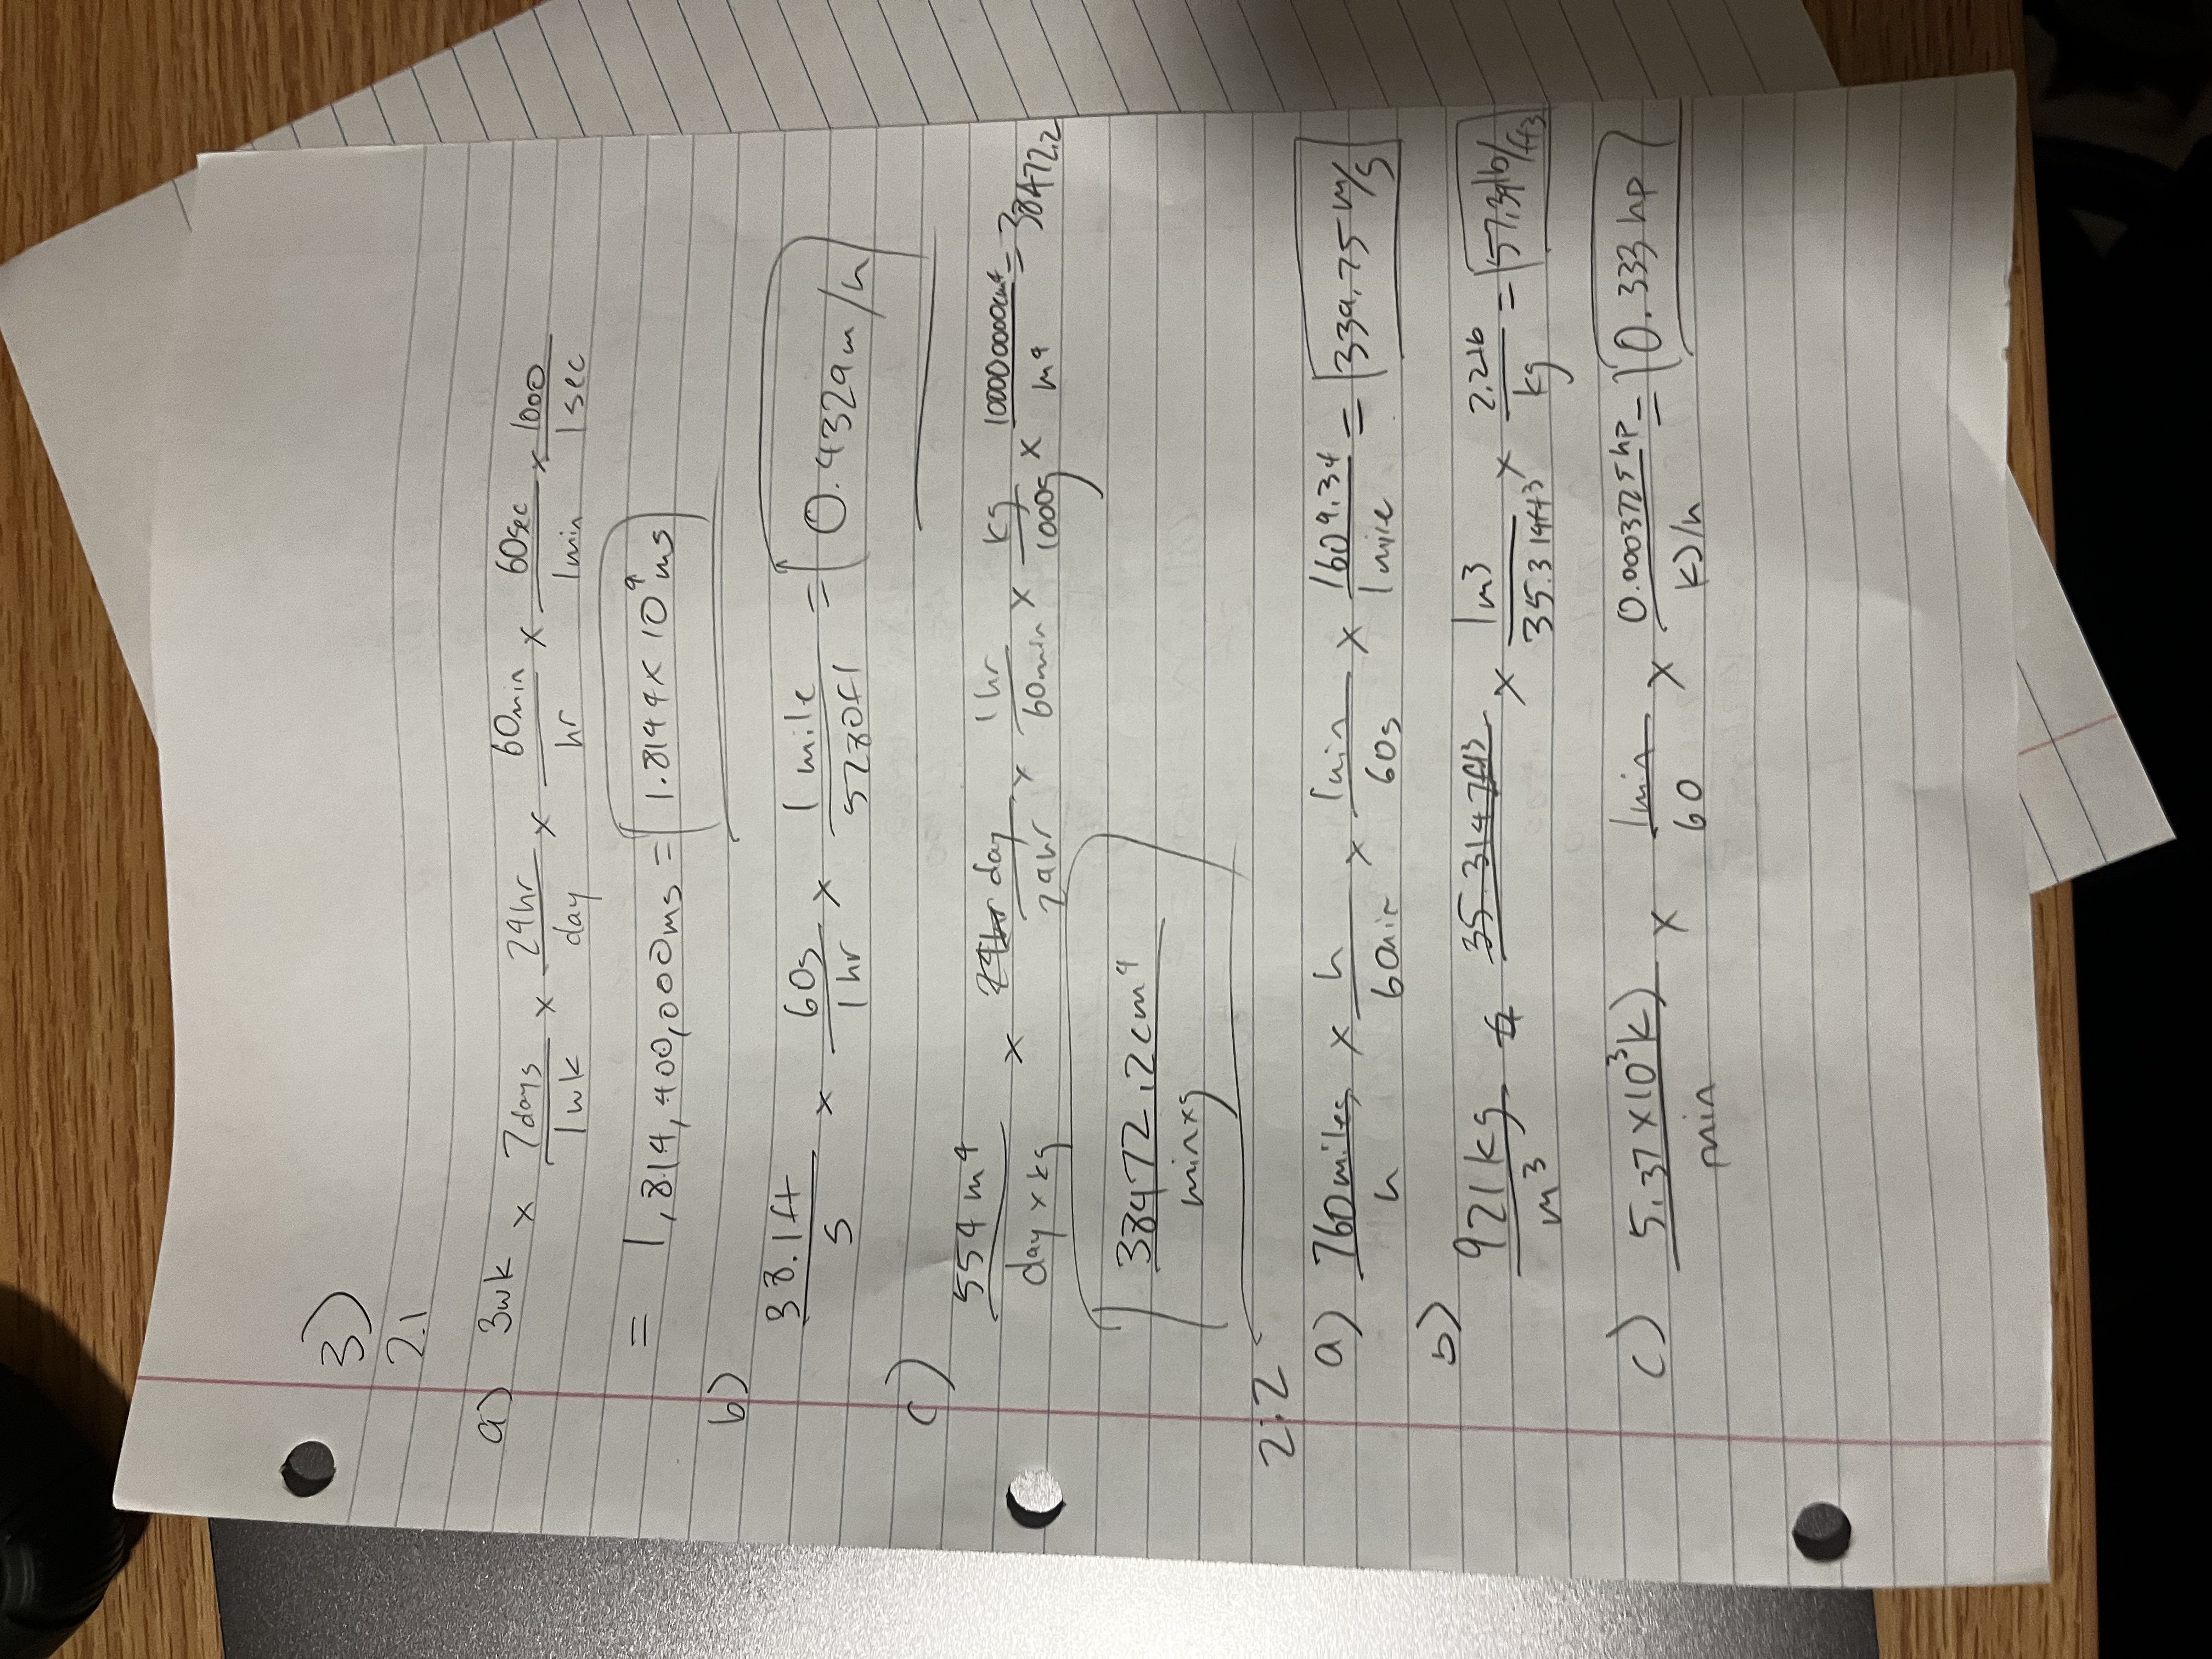 3)
2.1
a) 3wk × 7days/1wk × 24hr/day × 60min/hr × 60sec/1min × 1000/1sec
= 1,814,400,000ms = 1.8144×10⁹ms
b)
38.1ft/s × 60s/1hr × 1 mile/5280ft = 0.4329m/h
c)
554m⁴/day×kg × day/24hr × 1hr/60min × kg/1000g × 100000000cm⁴/m⁴ = 38472.2
38472.2cm⁴/min×g
2.2
a) 760miles/h × h/60min × 1min/60s × 1609.34/1mile = 339.75m/s
b)
921kg/m³ 35.3147ft3 × 1m3/35.314ft3 × 2.2lb/kg = 57.39lb/ft3
c) 5.37×10³kJ/min × 1min/60 × 0.0003725hp/kJ/h = 0.333hp